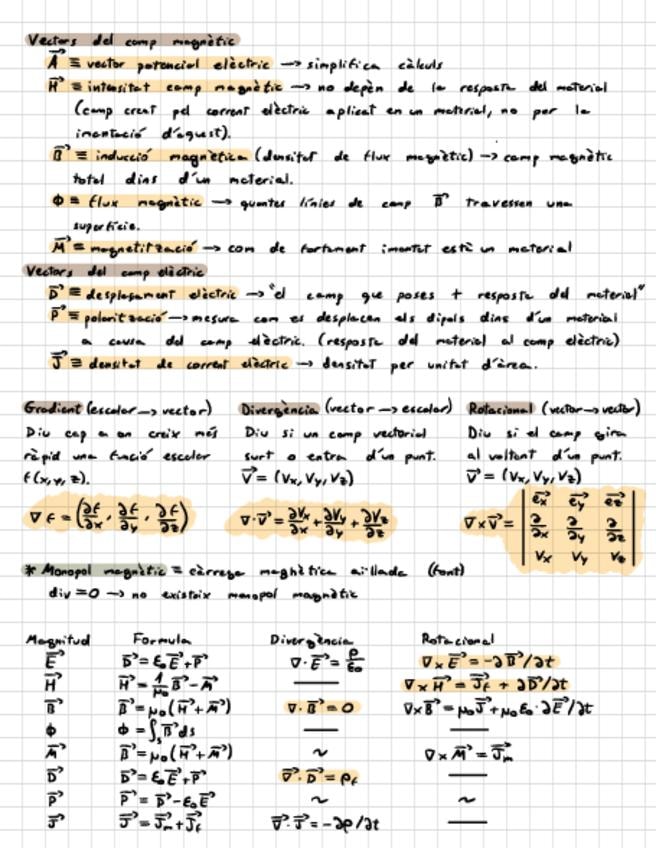 Vectors del camp magnètic
A⃗ ≡ vector potencial elèctric → simplifica càlculs
H⃗ ≡ intensitat camp magnètic → no depèn de la resposta del material
(camp creat pel corrent elèctric aplicat en un material, no per la
imantació d'aquest).
B⃗ ≡ inducció magnètica (densitat de flux magnètic) → camp magnètic
total dins d'un material.
Φ ≡ flux magnètic → quantes línies de camp B⃗ travessen una
superfície.
M⃗ ≡ magnetització → com de fortament imantat està un material
Vectors del camp elèctric
D⃗ ≡ desplaçament elèctric → "el camp que poses + resposta del material"
P⃗ ≡ polarització → mesura com es desplacen els dipols dins d'un material
a causa del camp elèctric. (resposta del material al camp elèctric)
J⃗ ≡ densitat de corrent elèctric → densitat per unitat d'àrea.
Gradient (escalar → vector)
Diu cap a on creix més
ràpid una funció escalar
f(x,y,z).
∇f = (∂f/∂x, ∂f/∂y, ∂f/∂z)
Divergència (vector → escalar)
Diu si un camp vectorial
surt o entra d'un punt.
V⃗ = (Vx, Vy, Vz)
∇·V⃗ = ∂Vx/∂x + ∂Vy/∂y + ∂Vz/∂z
Rotacional (vector → vector)
Diu si el camp gira
al voltant d'un punt.
V⃗ = (Vx, Vy, Vz)
∇×V⃗ = | e⃗x e⃗y e⃗z |
| ∂/∂x ∂/∂y ∂/∂z |
| Vx Vy Vz |
* Monopol magnètic ≡ càrrega maghètica aïllada (font)
div = 0 → no existeix monopol magnètic
Magnitud Formula Divergència Rotacional
E⃗ D⃗ = ε₀E⃗ + P⃗ ∇·E⃗ = ρ/ε₀ ∇×E⃗ = -∂B⃗/∂t
H⃗ H⃗ = 1/μ₀ B⃗ - M⃗ — ∇×H⃗ = J⃗f + ∂D⃗/∂t
B⃗ B⃗ = μ₀(H⃗ + M⃗) ∇·B⃗ = 0 ∇×B⃗ = μ₀J⃗ + μ₀ε₀·∂E⃗/∂t
Φ Φ = ∫s B⃗ ds — —
M⃗ B⃗ = μ₀(H⃗ + M⃗) ~ ∇×M⃗ = J⃗m
D⃗ D⃗ = ε₀E⃗ + P⃗ ∇⃗·D⃗ = ρf —
P⃗ P⃗ = D⃗ - ε₀E⃗ ~ ~
J⃗ J⃗ = J⃗m + J⃗f ∇⃗·J⃗ = -∂ρ/∂t —